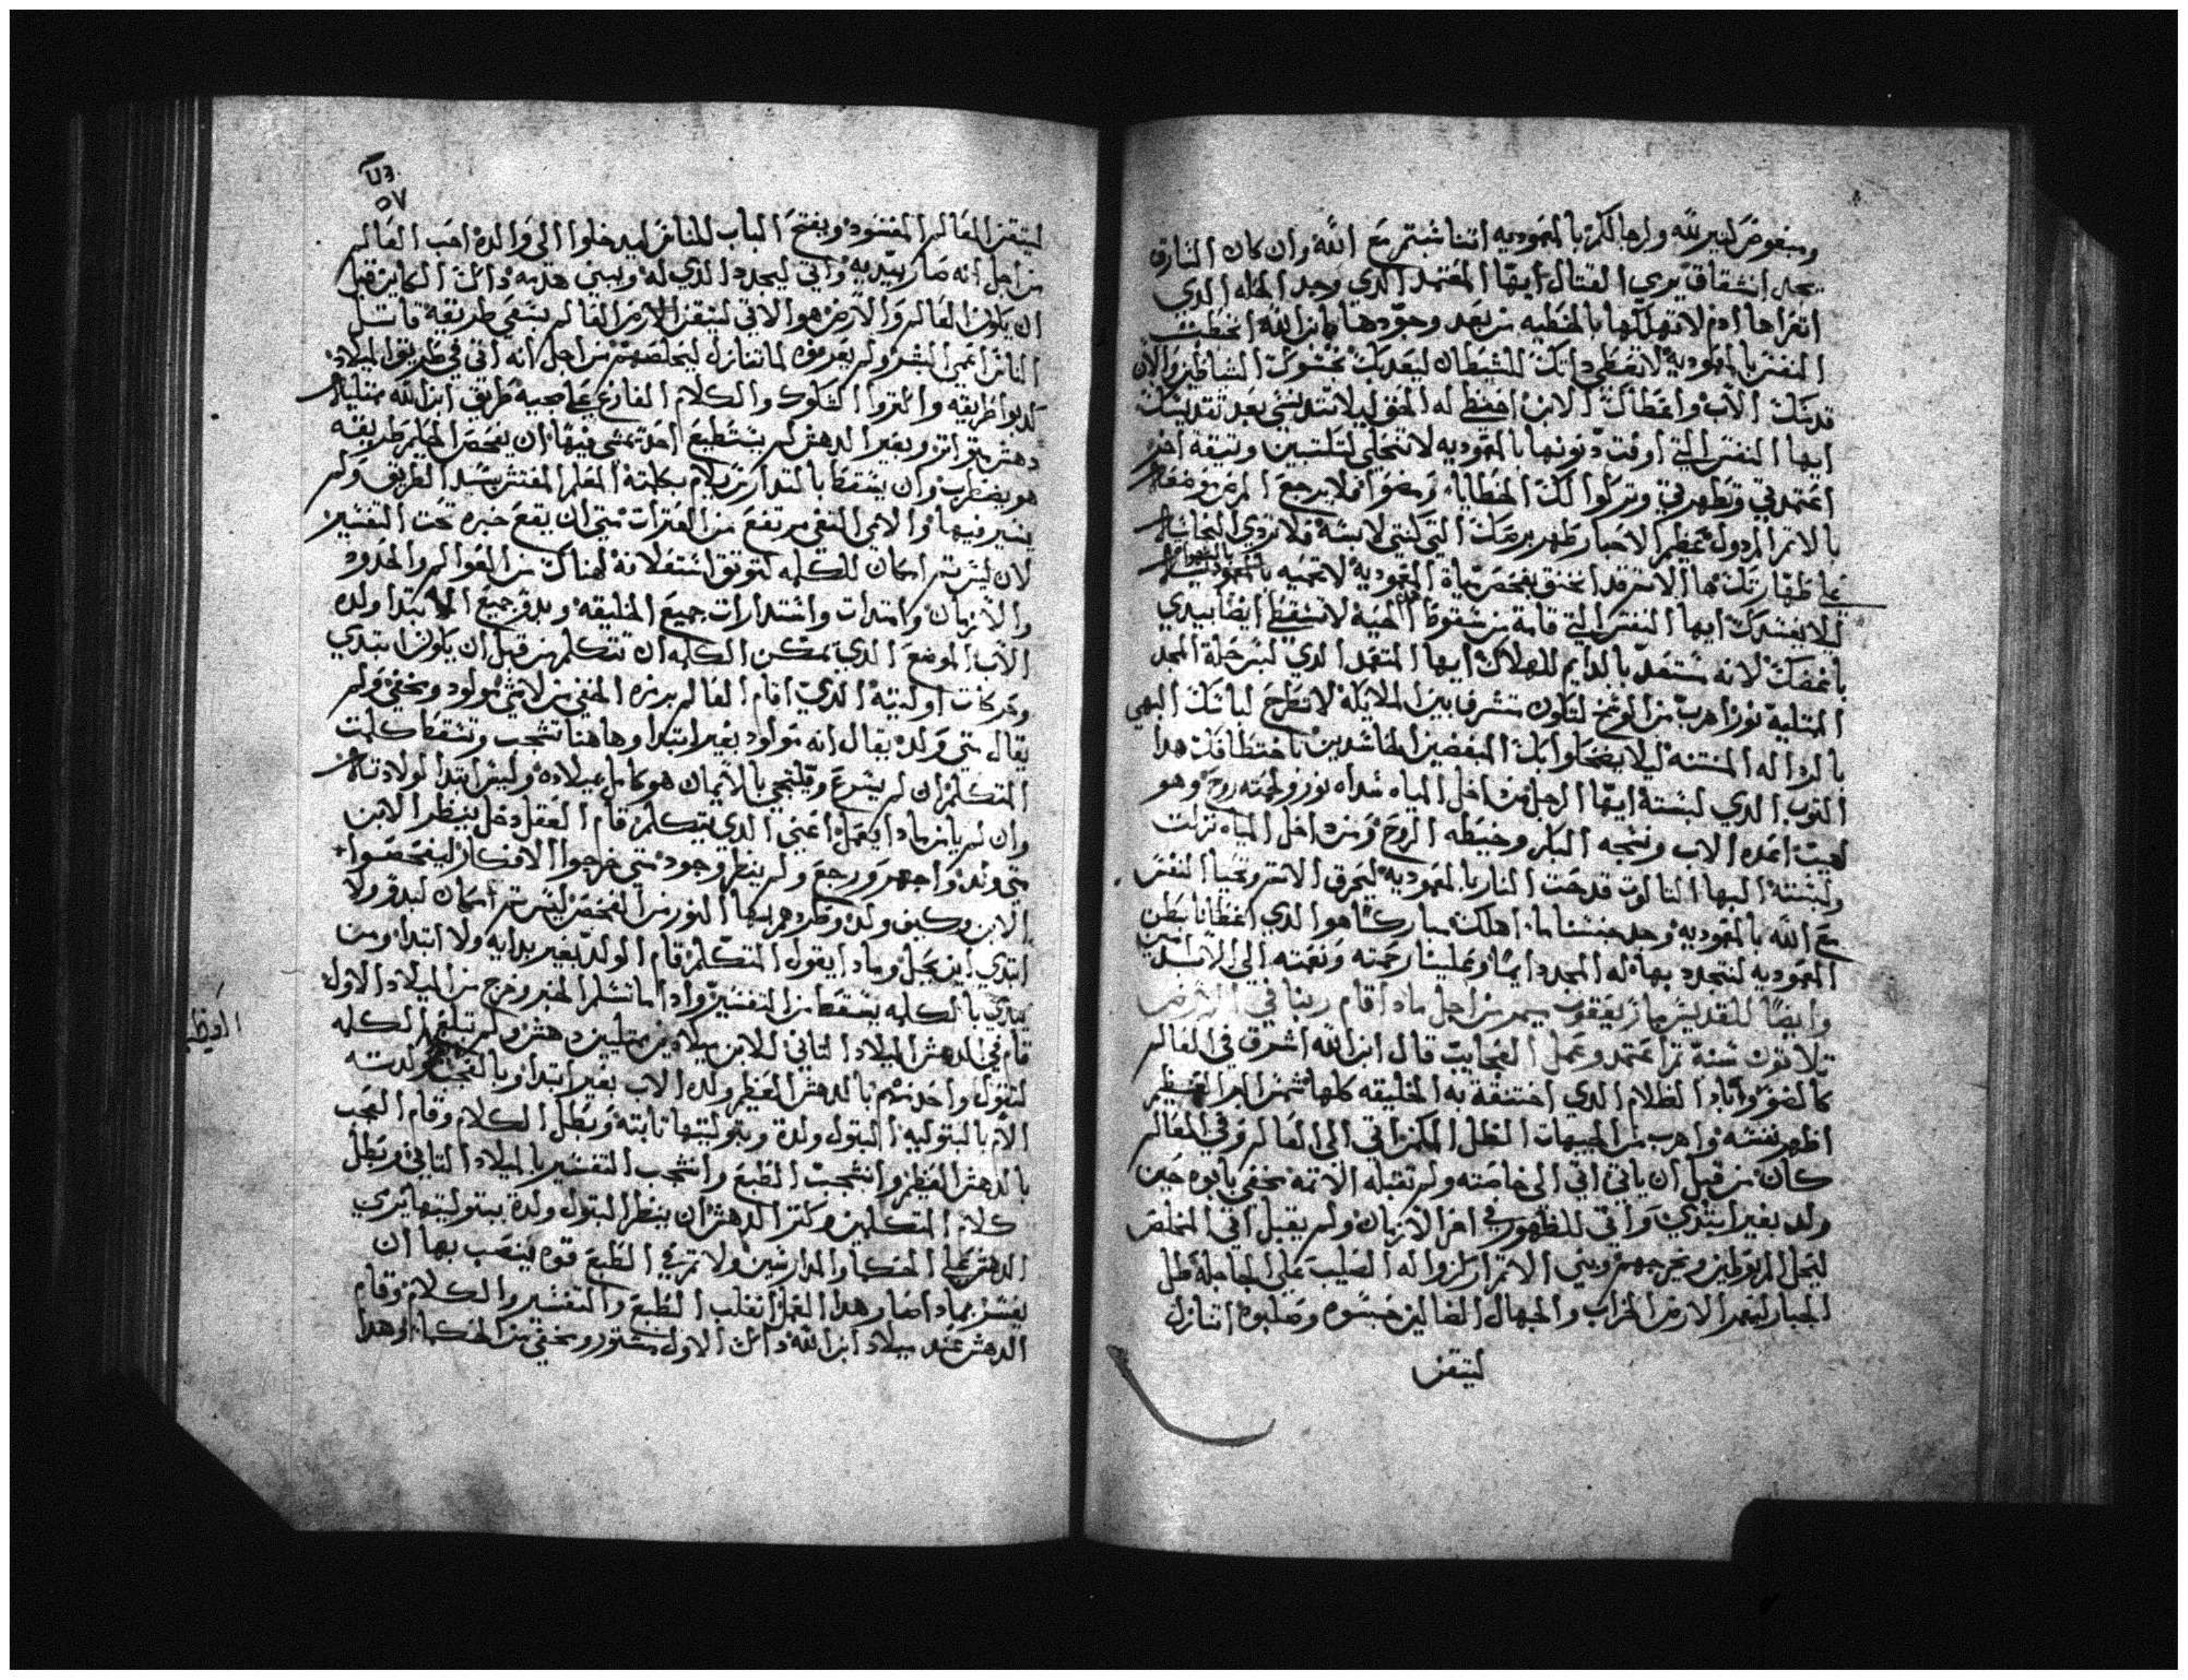 ومبغوض لغير الله والرجا لكم بالمعموديه اننا شبتم مع الله وان كان السارق
يجد انشقاق يري القتال ايها المعتمد الذي وجد الحله الذي
اتعراها ادم لا تهلكها بالخطيه من بعد وجودها يا بن الله انخطبت
النفس بالمعموديه لا تعطي داتك للشيطان
قدسك الاب واعطاك الابن احفظ له الحق ليلا تتدنسي بعد تقديسك
ايها النفس التي اوفت ديونها بالمعموديه لا تتخلي لتكتبين وتيقه اخر
اعتمدتي وتطهرتي وتركوا لك الخطايا ومضوا فلا يرجع المرض
بالاتم المردول عظيم الاحبار طهر برصك التي كنتي لابسه فلا تردي النجاسه
علي طهارتك ها الاتم قد اختنق بمياة المعموديه لا تحييه
ليلا يفسدك ايها النفس التي قامة من سقوط الحيه لا تسقطي ايضا بيدي
باغضك لانه مستعد بالدايم للهلاك ايها المتعمد الذي لبس حلة المجد
الممتلية نور اهرب من الوسخ لتكون متشرف بين الملايكه لا تطرح لباسك البهي
بالرداله المنتنه ليلا يضحكوا بك المبغضين الحاسدين باختطافك هدا
التوب الذي لبسته ايها الرجل من داخل المياه سداه نور ولحمته روح وهو
لهيب اعده الاب ونسجه البكر وخيطه الروح ومن داخل المياه نزلت
ولبسته البها التالوت قدحت النار بالمعموديه ليحرق الاتم وتحيا النفس
مع الله بالمعموديه وجد جنسنا ما اهلك مبارك هو الذي اعطانا بطن
المعموديه لنتجدد بها له المجد دايما وعلينا رحمته ونعمته الي الابد امين
وايضا للقديس مار يعقوب ميمر من اجل مادا اقام ربنا في الارض
تلاتون سنة تم اعتمد وعمل العجايب قال ابن الله اشرق في العالم
كالضو واباد الظلام الذي اختنقة به الخليقه كلها شمس البر العظيم
اظهر نفسه واهرب من الجبهات الظل المكمن اتي الي العالم وفي العالم
كان من قبل ان ياتي اتي الي خاصته ولم تقبله الامه مخفي بابوه حين
ولد بغير ابتدي واتي للظهور في اخر الازمان ولم يقبل اتي المخلص
ليحل المربوطين ويخرجهم وبني الاتم اركزوا له الصليب علي الجاجلة طل
الجبار ليعمر الارض الخراب والجهال الضالين حبسوه وصلبوه اتنازل
ليتقن
٥٧
ليتقن العالم المفسود ويفتح الباب للناس ليدخلوا الي والده احب العالم
من اجل انه صار بيديه واتي ليجدد الذي له وبيني هدمه دالك الكاين قبل
ان يكون العالم والارض هو الاتي ليتقن الارض العالم بشقي طريقة قاتل
الناس اعمي البشر ولم يعرفوه لما تنازل ليخلصهم من اجل انه اتي في طريق الميلاد
كدبوا طريقه واكتروا الشكوك والكلام الفارغ عجيبه طريق ابن الله ممتلية
دهش متواتر وبغير الدهش لم يستطيع احد يمشي فيها ان يفحص الحكيم طريقه
هو يضطرب وان يسقط بكلمة المعلم المفتش يسد الطريق ولم
يسير فيها والايمي النقي مرتفع من العترات متي ان يقع خبره تحت التفسير
لان ليس تم امكان للكلمه لتوتق اسفلانه هناك من العوالم والحدود
والازمان وامتدات واستدارات جميع الخليقه وبدو جميع ابتدا ولده
الاب الموضع الذي تمكن الكلمه ان تتكلم من قبل ان يكون ابتدي
وحركات اوليته الذي اقام العالم برمزه الخفي من لا شي مولود ومخفي ولم
يقال متي ولد يقال انه مولود بغير ابتدا وهاهنا تشجب وتسقط كلمت
المتكلم ان لم يسرع ويلتجي بالايمان هو كامل ميلاده وليس ابتدا لولادته
وان لم يامن مادا يعمل اعني الذي يتكلم قام العقل دخل ينظر الابن
متي ولد واجهر ورجع ولم ينظر وجود متي خرجوا الافكار ليفحصوا
الابن وكيف ولد وطردهم بها النور من الفحص ليس تم امكان لبدو ولا
ابتدي اين يحيل ومادا يقول المتكلم قام الولد بغير بدايه ولا ابتدا ومن
يبتدي بالكلمه يسقط من التفسير وادا ما نشلم الخبر وخرج من الميلاد الاول
قام في الدهش الميلاد التاني للابن ميلادين ممتليين دهش ولم تبلغ الكلمه
لتقول واحد منهم بالدهش العظيم ولده الاب بغير ابتدا وبالعجب ولدته
الام بالبتوليه البتول ولدة وبتوليتها تابته وبطل الكلام وقام العجب
بالدهش العظيم وانشجبت الطبع وانشجب التفسير بالميلاد التاني وبطل
كلام المتكلمين وكتر الدهش ان ينظر البتول ولدة ببتوليتها يري
الدهش علي الحكما والدارسين ولا تم في الطبع قوه لينصب بها ان
يفسر بمادا صار هدا العمل انغلب الطبع والتفسير والكلام وقام
الدهش عند ميلاد ابن الله دالك الاول مستور ومخفي من الحكما وهدا
العظيم